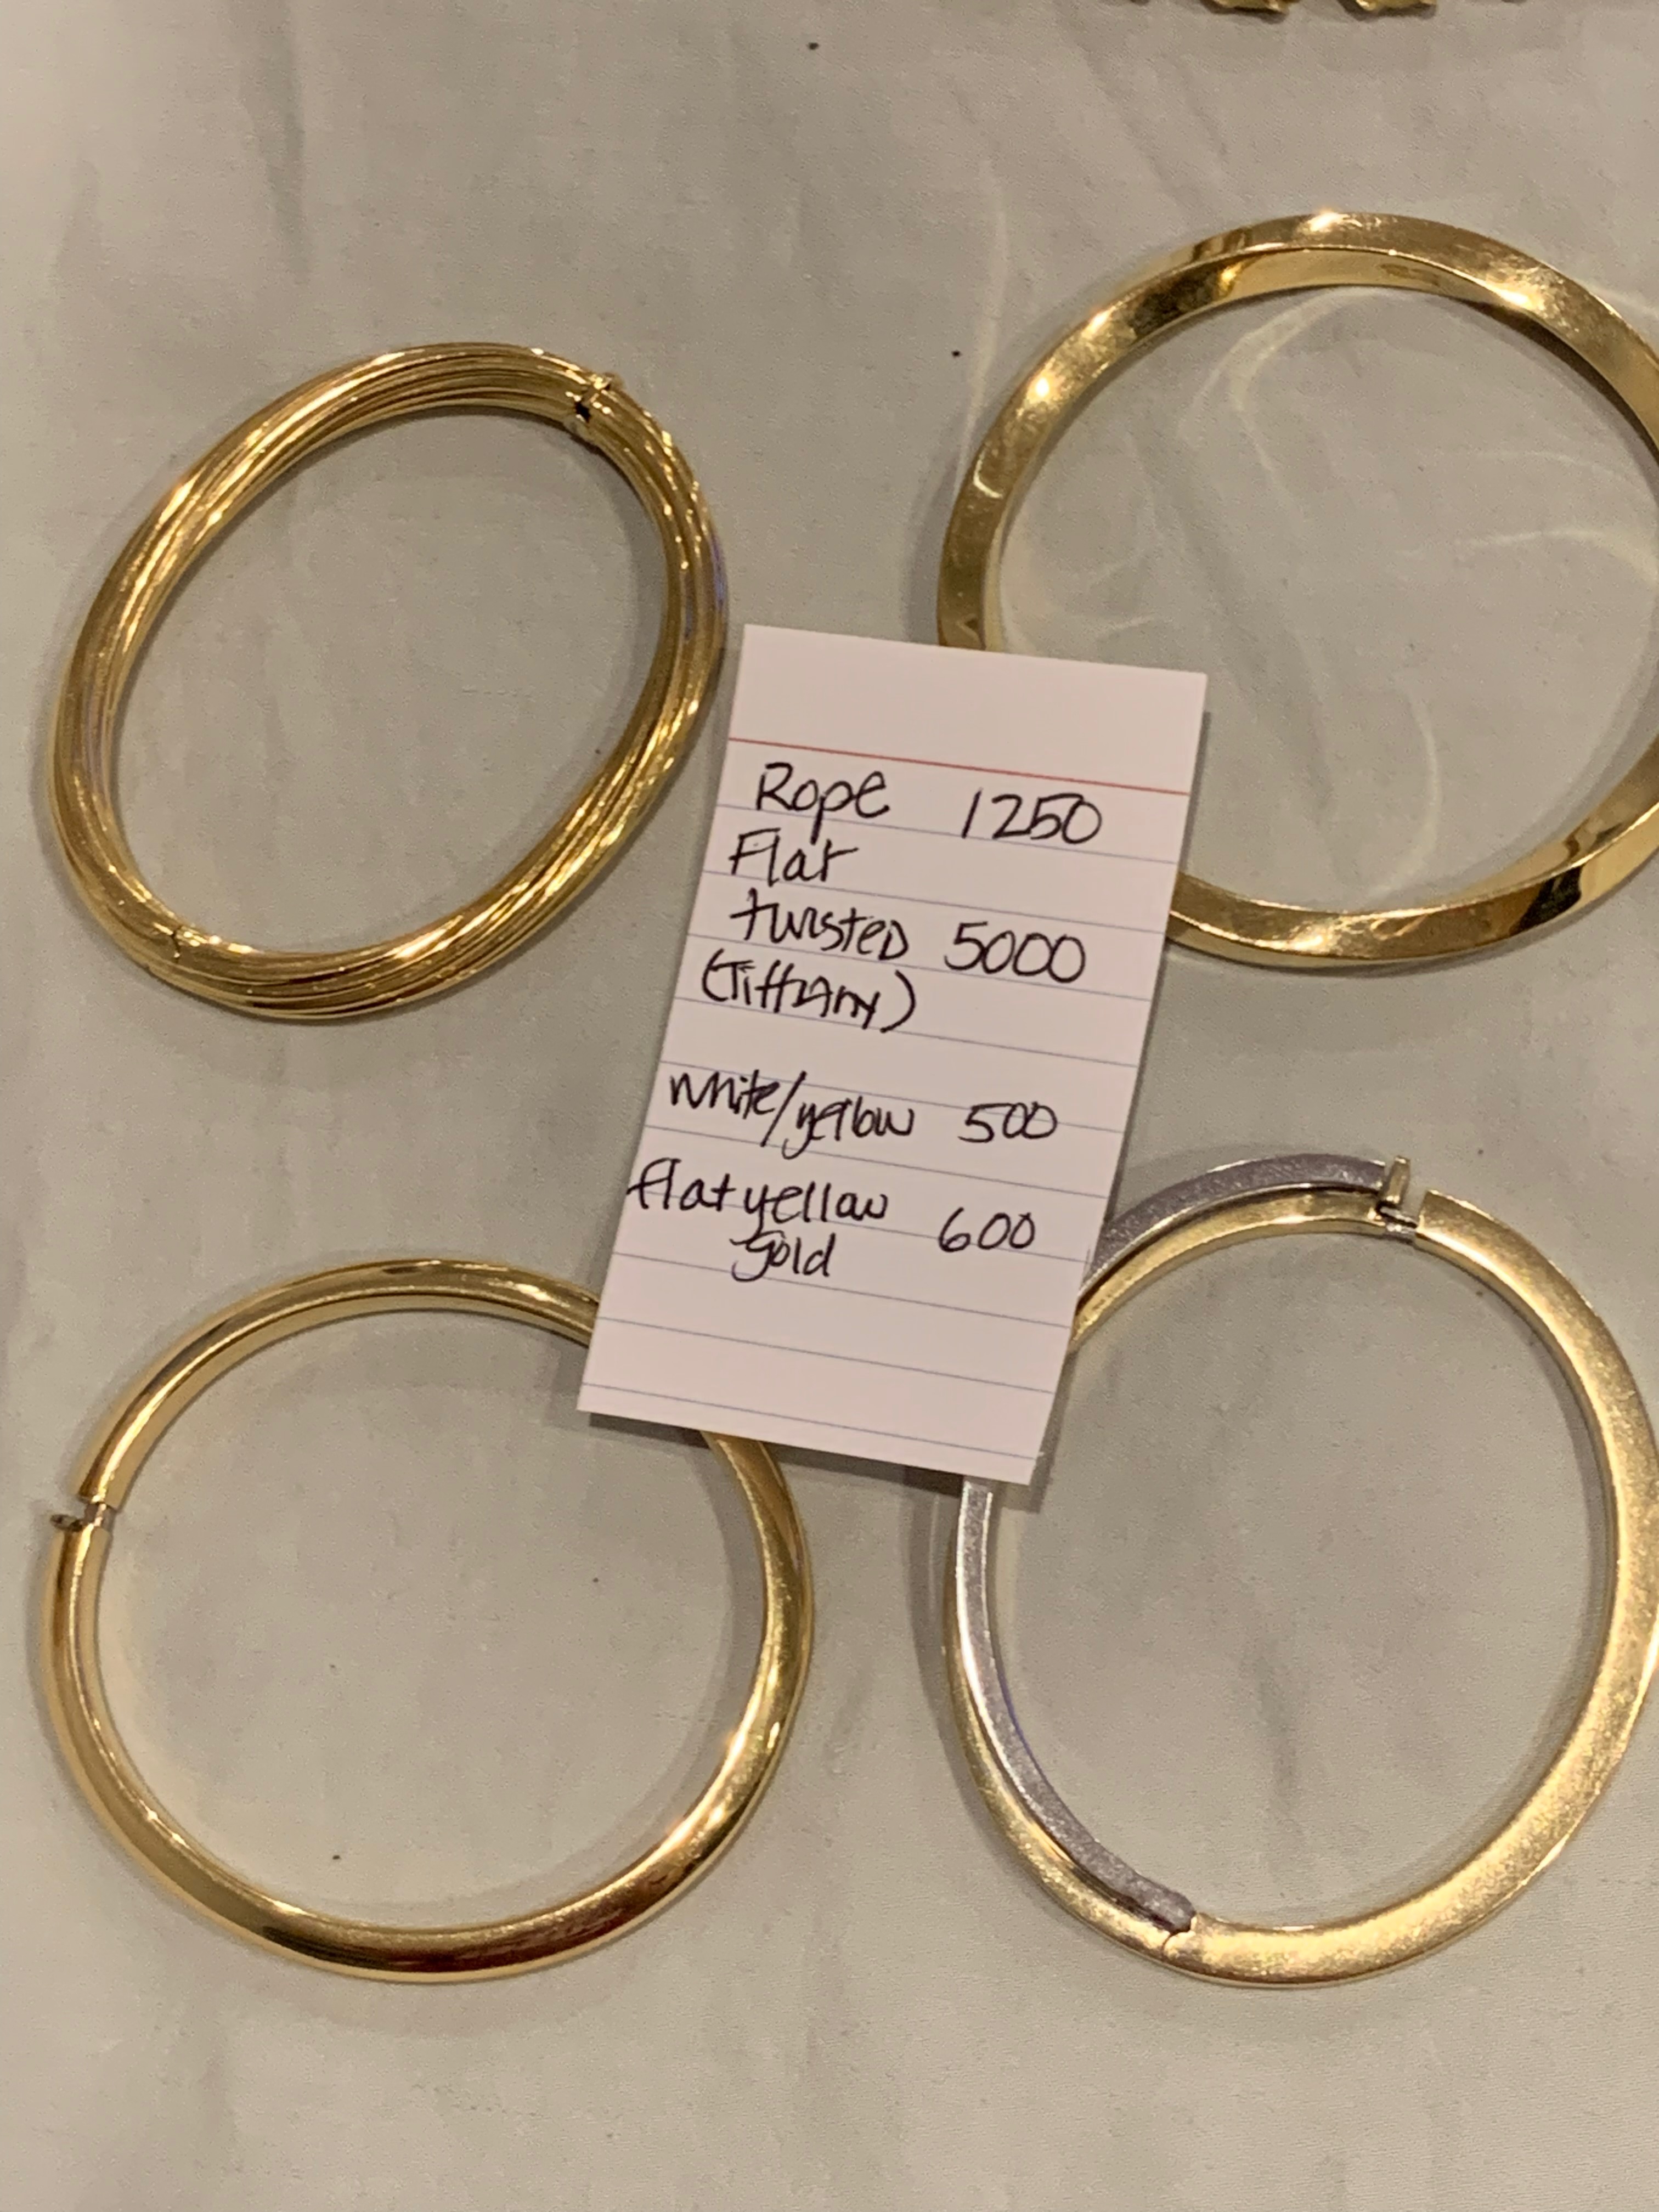 Rope 1250
Flat
twisted 5000
(Tiffany)
white/yellow 500
flat yellow 600
gold